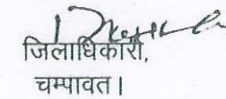 जिलाधिकारी,
चम्पावत।